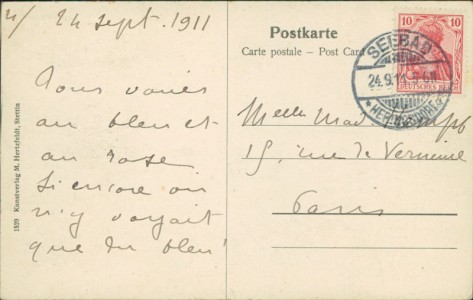 4/ 24 sept. 1911
Postkarte
Carte postale – Post Card
10 10
DEUTSCHES REICH
SEEBAD
24.9.11.
HERINGSDORF
Vous variez
au bleu et
au rose
Si encore on
n'y voyait
que du bleu!
Melle Mad
15, rue de Verneuil
Paris
1539 Kunstverlag M. Hertzfeldt, Stettin